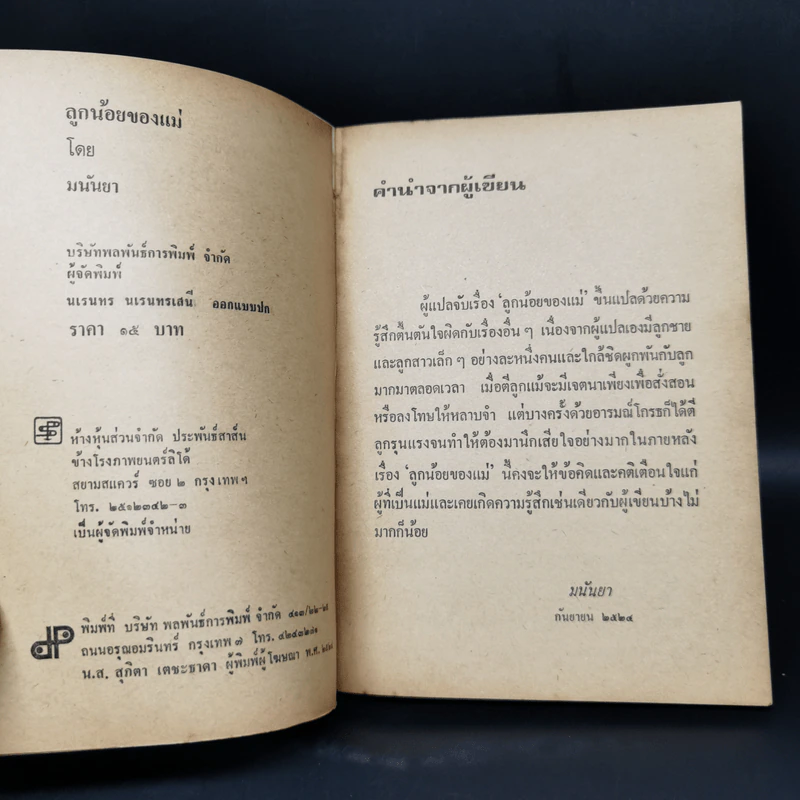 ลูกน้อยของแม่
โดย
มนันยา
บริษัทพลพันธ์การพิมพ์ จำกัด
ผู้จัดพิมพ์
นเรนทร นเรนทรเสนี ออกแบบปก
ราคา ๑๕ บาท
ห้างหุ้นส่วนจำกัด ประพันธ์สาส์น
ข้างโรงภาพยนตร์ลิโด้
สยามสแควร์ ซอย ๒ กรุงเทพฯ
โทร. ๒๕๑๒๓๔๒-๓
เป็นผู้จัดพิมพ์จำหน่าย
พิมพ์ที่ บริษัท พลพันธ์การพิมพ์ จำกัด
ถนนอรุณอมรินทร์ กรุงเทพ ๗ โทร.
น.ส. สุภิตา เตชะธาดา ผู้พิมพ์ผู้โฆษณา พ.ศ.
คำนำจากผู้เขียน
ผู้แปลจับเรื่อง 'ลูกน้อยของแม่' ขึ้นแปลด้วยความ
รู้สึกตื้นตันใจผิดกับเรื่องอื่น ๆ เนื่องจากผู้แปลเองมีลูกชาย
และลูกสาวเล็ก ๆ อย่างละหนึ่งคนและใกล้ชิดผูกพันกับลูก
มากมาตลอดเวลา เมื่อตีลูกแม้จะมีเจตนาเพียงเพื่อสั่งสอน
หรือลงโทษให้หลาบจำ แต่บางครั้งด้วยอารมณ์โกรธก็ได้ตี
ลูกรุนแรงจนทำให้ต้องมานึกเสียใจอย่างมากในภายหลัง
เรื่อง 'ลูกน้อยของแม่' นี้คงจะให้ข้อคิดและคติเตือนใจแก่
ผู้ที่เป็นแม่และเคยเกิดความรู้สึกเช่นเดียวกับผู้เขียนบ้างไม่
มากก็น้อย
มนันยา
กันยายน ๒๕๒๔